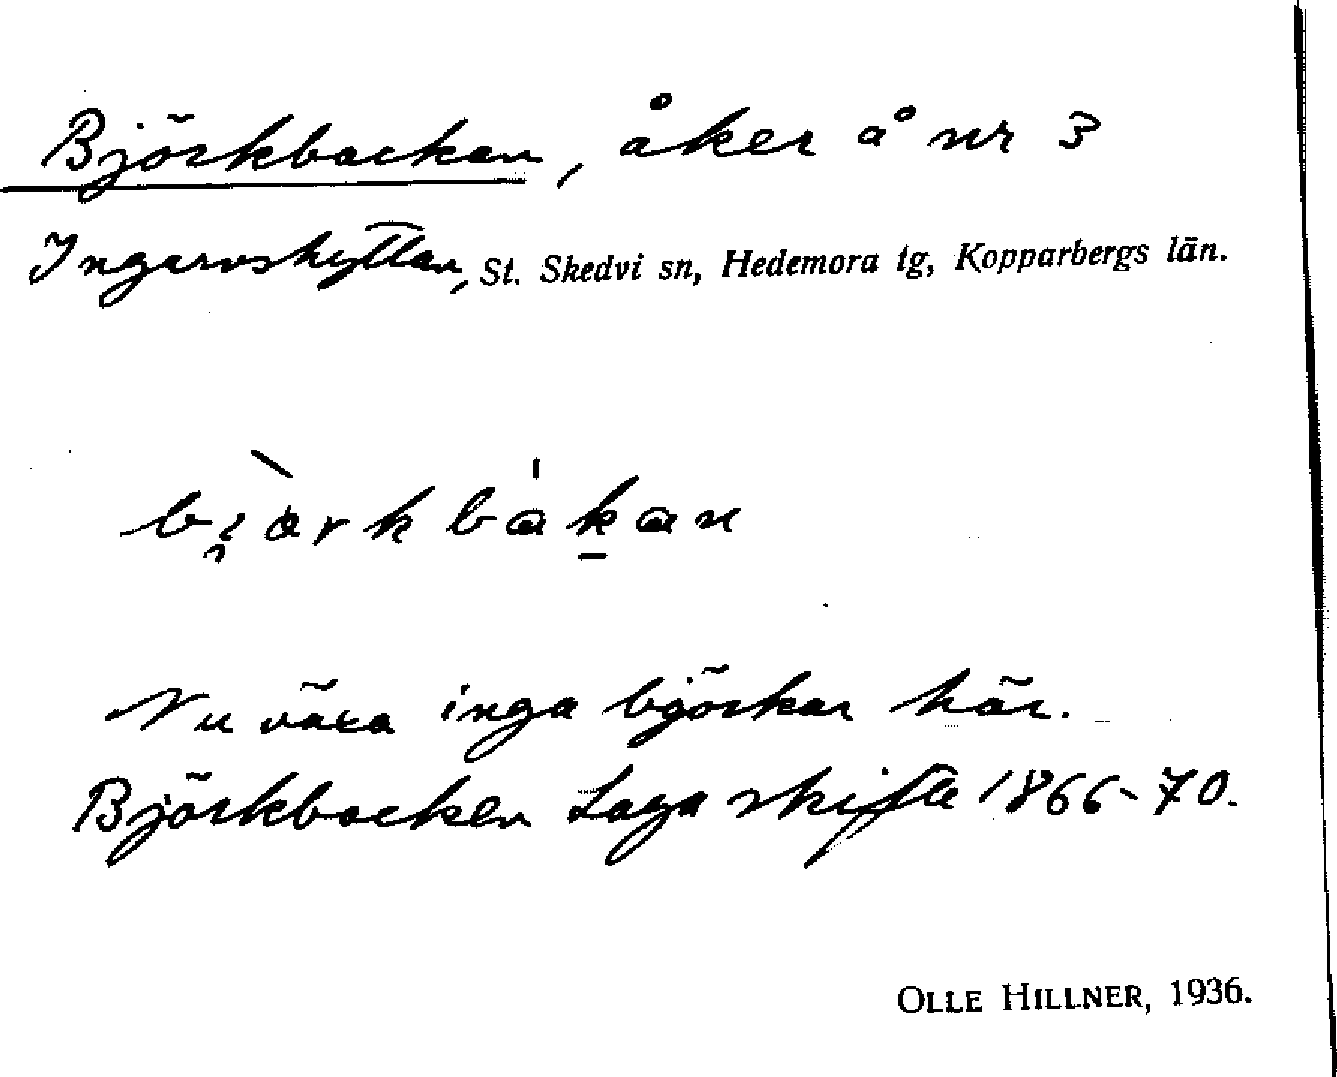 Björkbackan, åker å nr 3
Ingarvshyttan, St. Skedvi sn, Hedemora tg, Kopparbergs län.
Nu växa inga björkar här.
Björkbacken Laga skifte 1866-70.
OLLE HILLNER, 1936.